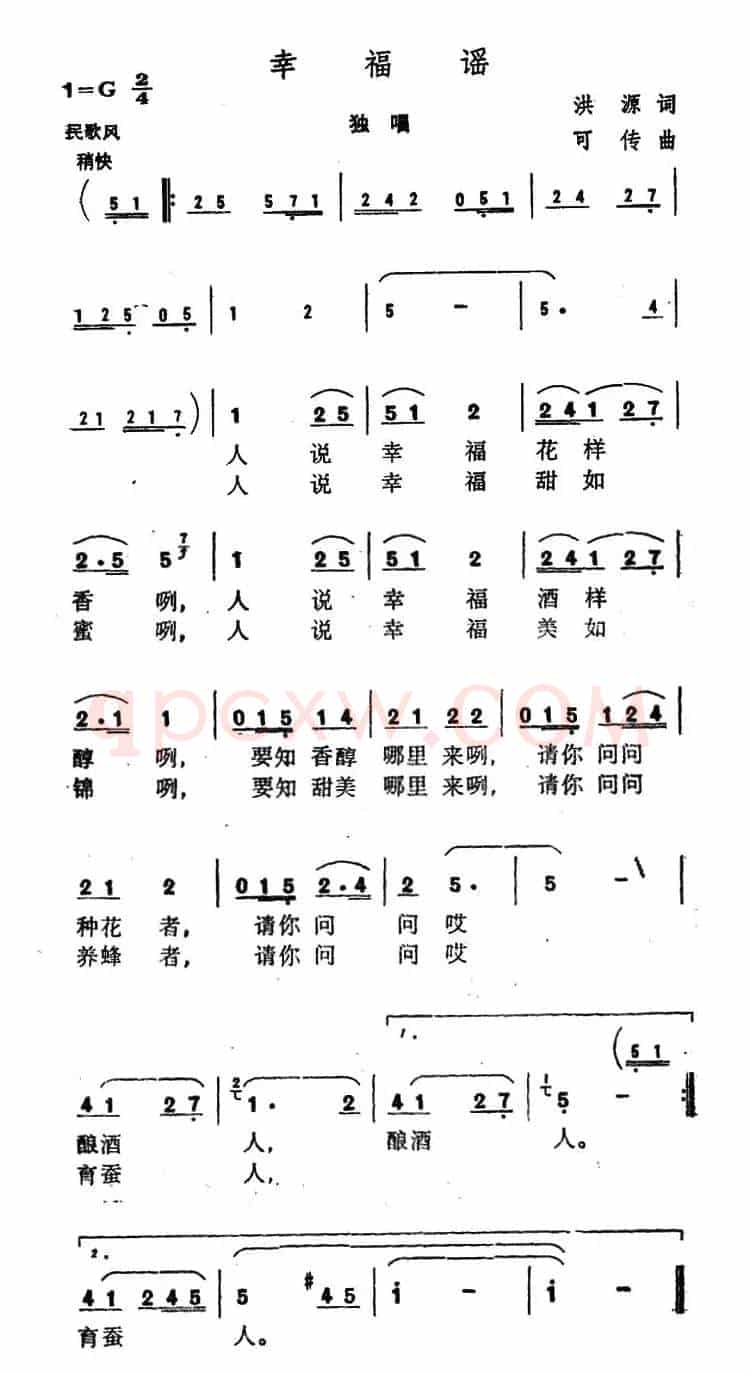 幸福谣
1=G 2/4
洪源词
民歌风
独唱
可传曲
稍快
( 5 1 ‖: 2 5 5 7 1 | 2 4 2 0 5 1 | 2 4 2 7 |
1 2 5 0 5 | 1 2 | 5 - | 5. 4 |
2 1 2 1 7 ) | 1 2 5 | 5 1 2 | 2 4 1 2 7 |
人 说 幸 福 花 样
人 说 幸 福 甜 如
2·5 5 | 1 2 5 | 5 1 2 | 2 4 1 2 7 |
香 咧, 人 说 幸 福 酒 样
蜜 咧, 人 说 幸 福 美 如
2·1 1 | 0 1 5 1 4 | 2 1 2 2 | 0 1 5 1 2 4 |
醇 咧, 要知 香醇 哪里 来咧, 请你 问问
锦 咧, 要知 甜美 哪里 来咧, 请你 问问
2 1 2 | 0 1 5 2·4 | 2 5. | 5 - |
种花 者, 请你 问 问 哎
养蜂 者, 请你 问 问 哎
1.
( 5 1
4 1 2 7 | 1. 2 | 4 1 2 7 | 5 - :‖
酿酒 人, 酿酒 人。
育蚕 人,
2.
4 1 2 4 5 | 5 #4 5 | i - | i - ‖
育蚕 人。
qpcxw.com